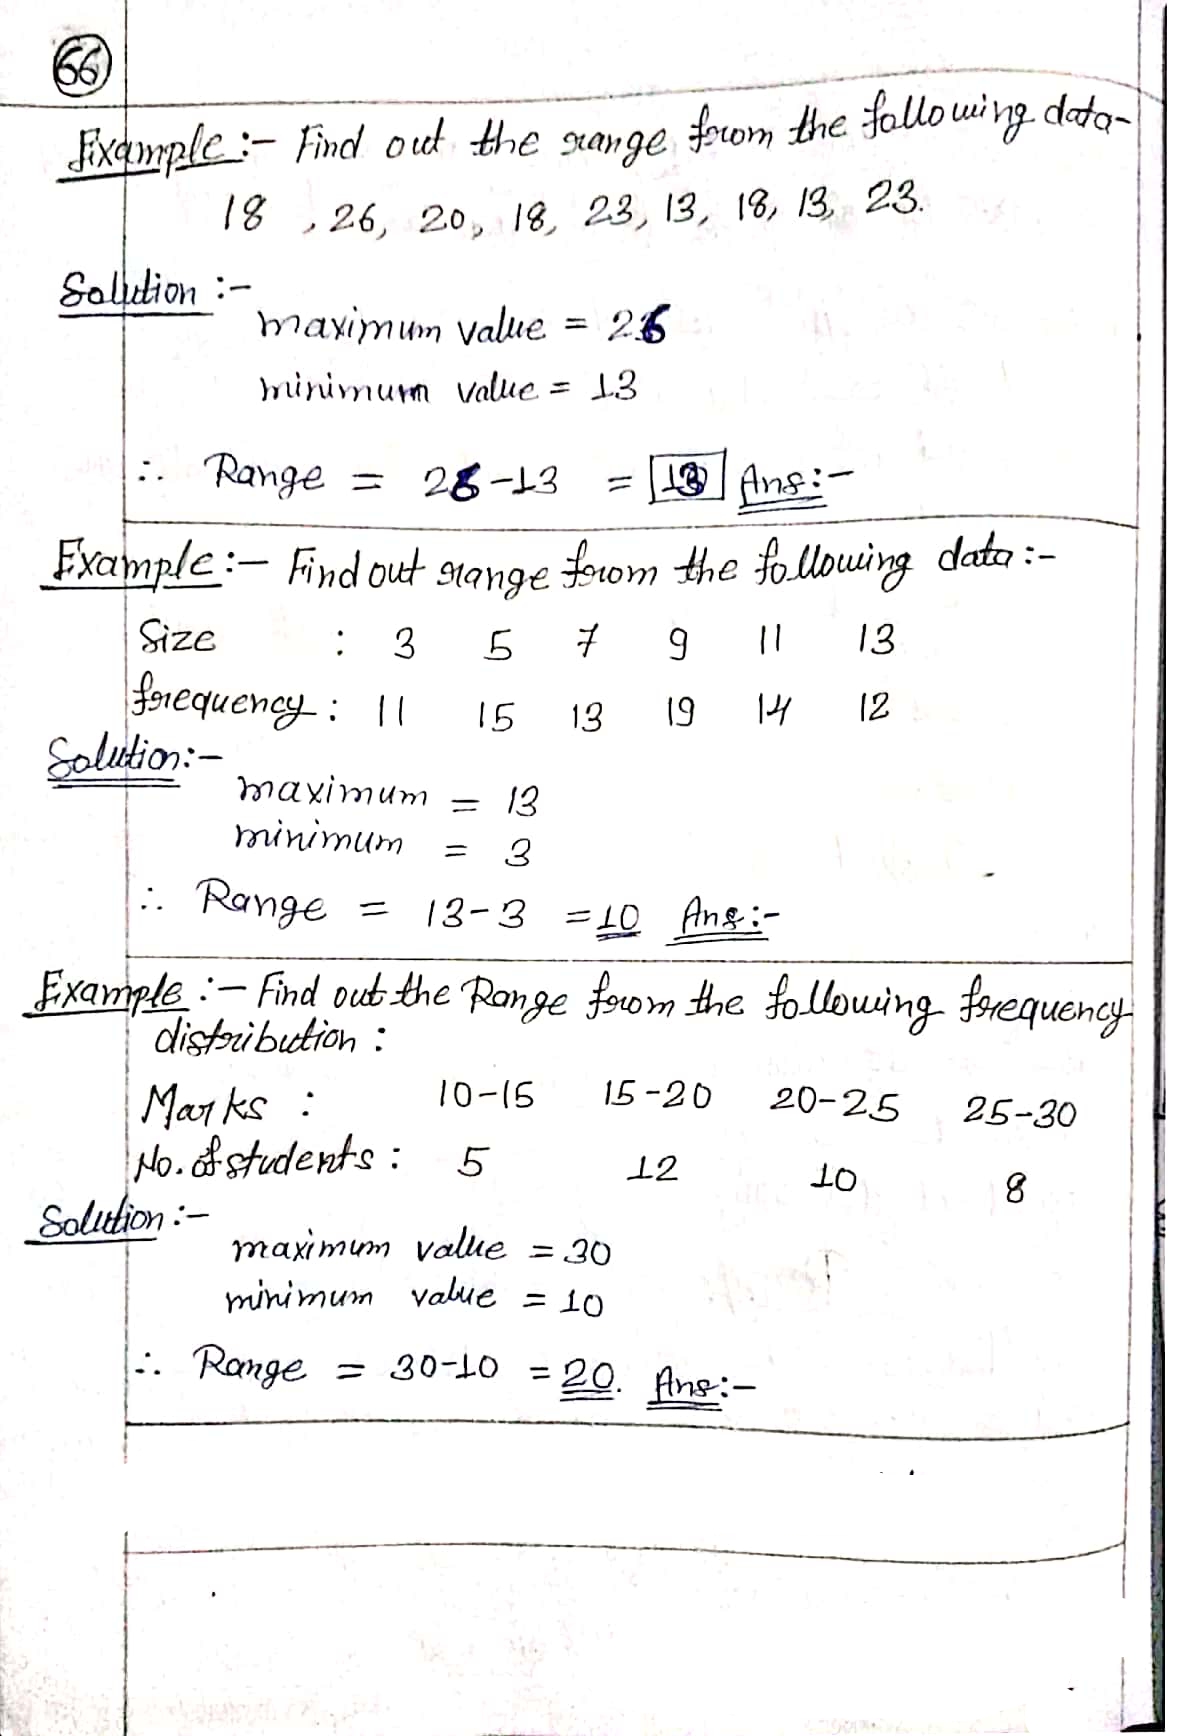 66
Example :- Find out the range from the following data-
18 , 26, 20, 18, 23, 13, 18, 13, 23.
Solution :-
maximum value = 26
minimum value = 13
∴ Range = 26-13 = 13 Ans:-
Example :- Find out range from the following data :-
Size : 3 5 7 9 11 13
frequency : 11 15 13 19 14 12
Solution:-
maximum = 13
minimum = 3
∴ Range = 13-3 = 10 Ans:-
Example :- Find out the Range from the following frequency
distribution :
Marks : 10-15 15-20 20-25 25-30
No. of students : 5 12 10 8
Solution :-
maximum value = 30
minimum value = 10
∴ Range = 30-10 = 20. Ans:-